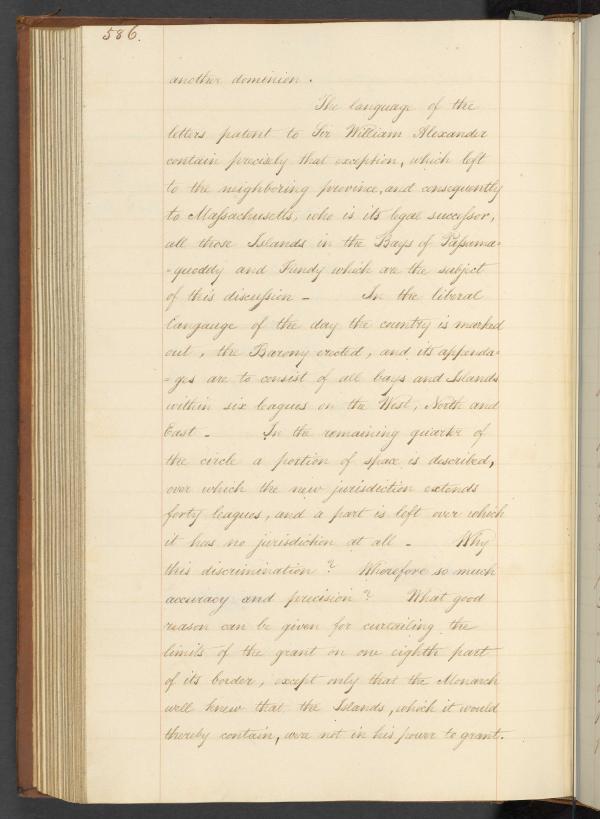 586.
another dominion.
The language of the
letters patent to Sir William Alexander
contain precisely that exception, which left
to the neighboring province, and consequently
to Massachusetts, who is its legal successor,
all those Islands in the Bays of Passama=
=quoddy and Fundy which are the subject
of this discussion - In the liberal
langauge of the day the country is marked
out, the Barony erected, and its appenda=
=ges are to consist of all bays and Islands
within six leagues on the West, North and
East - In the remaining quarter of
the circle a portion of space is described,
over which the new jurisdiction extends
forty leagues, and a part is left over which
it has no jurisdiction at all - Why
this discrimination? Wherefore so much
accuracy and precision? What good
reason can be given for curtailing the
limits of the grant on one eighth part
of its border, except only that the Monarch
well knew that the Islands, which it would
thereby contain, were not in his power to grant.